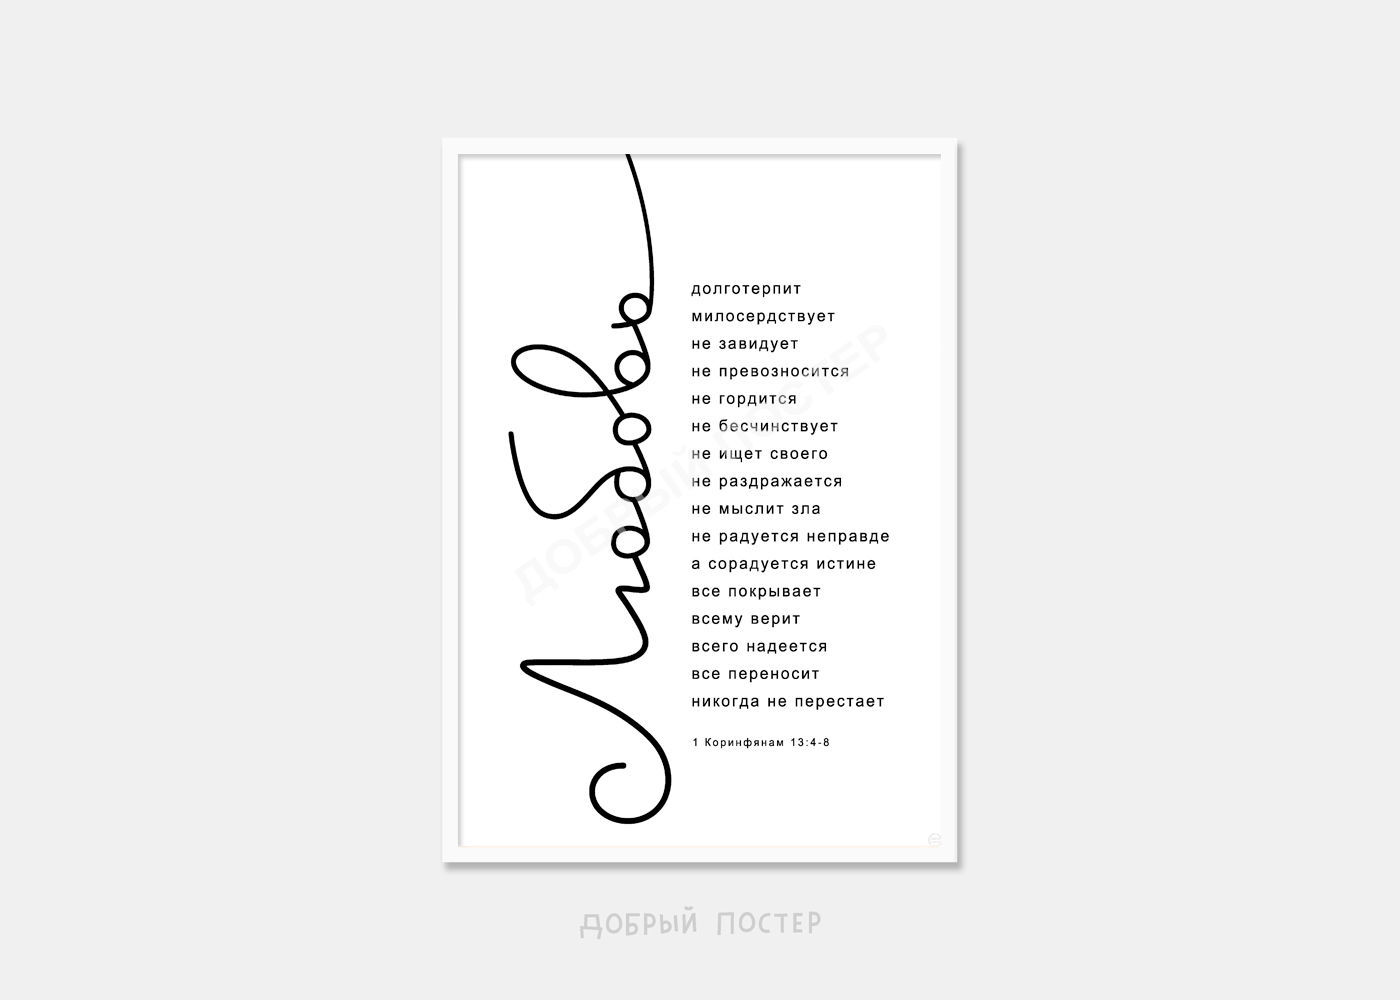 Любовь
долготерпит
милосердствует
не завидует
не превозносится
не гордится
не бесчинствует
не ищет своего
не раздражается
не мыслит зла
не радуется неправде
а сорадуется истине
все покрывает
всему верит
всего надеется
все переносит
никогда не перестает
1 Коринфянам 13:4-8
ДОБРЫЙ ПОСТЕР
ДОБРЫЙ ПОСТЕР